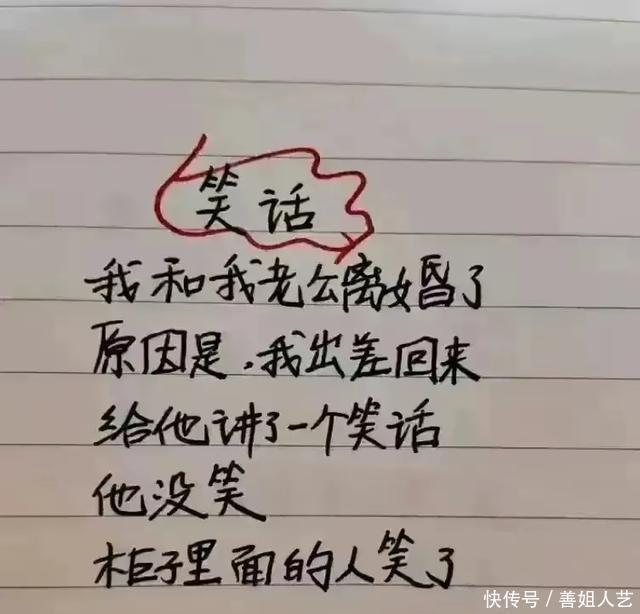 笑话
我和我老公离婚了
原因是，我出差回来
给他讲了一个笑话
他没笑
柜子里面的人笑了
快传号／善姐人艺